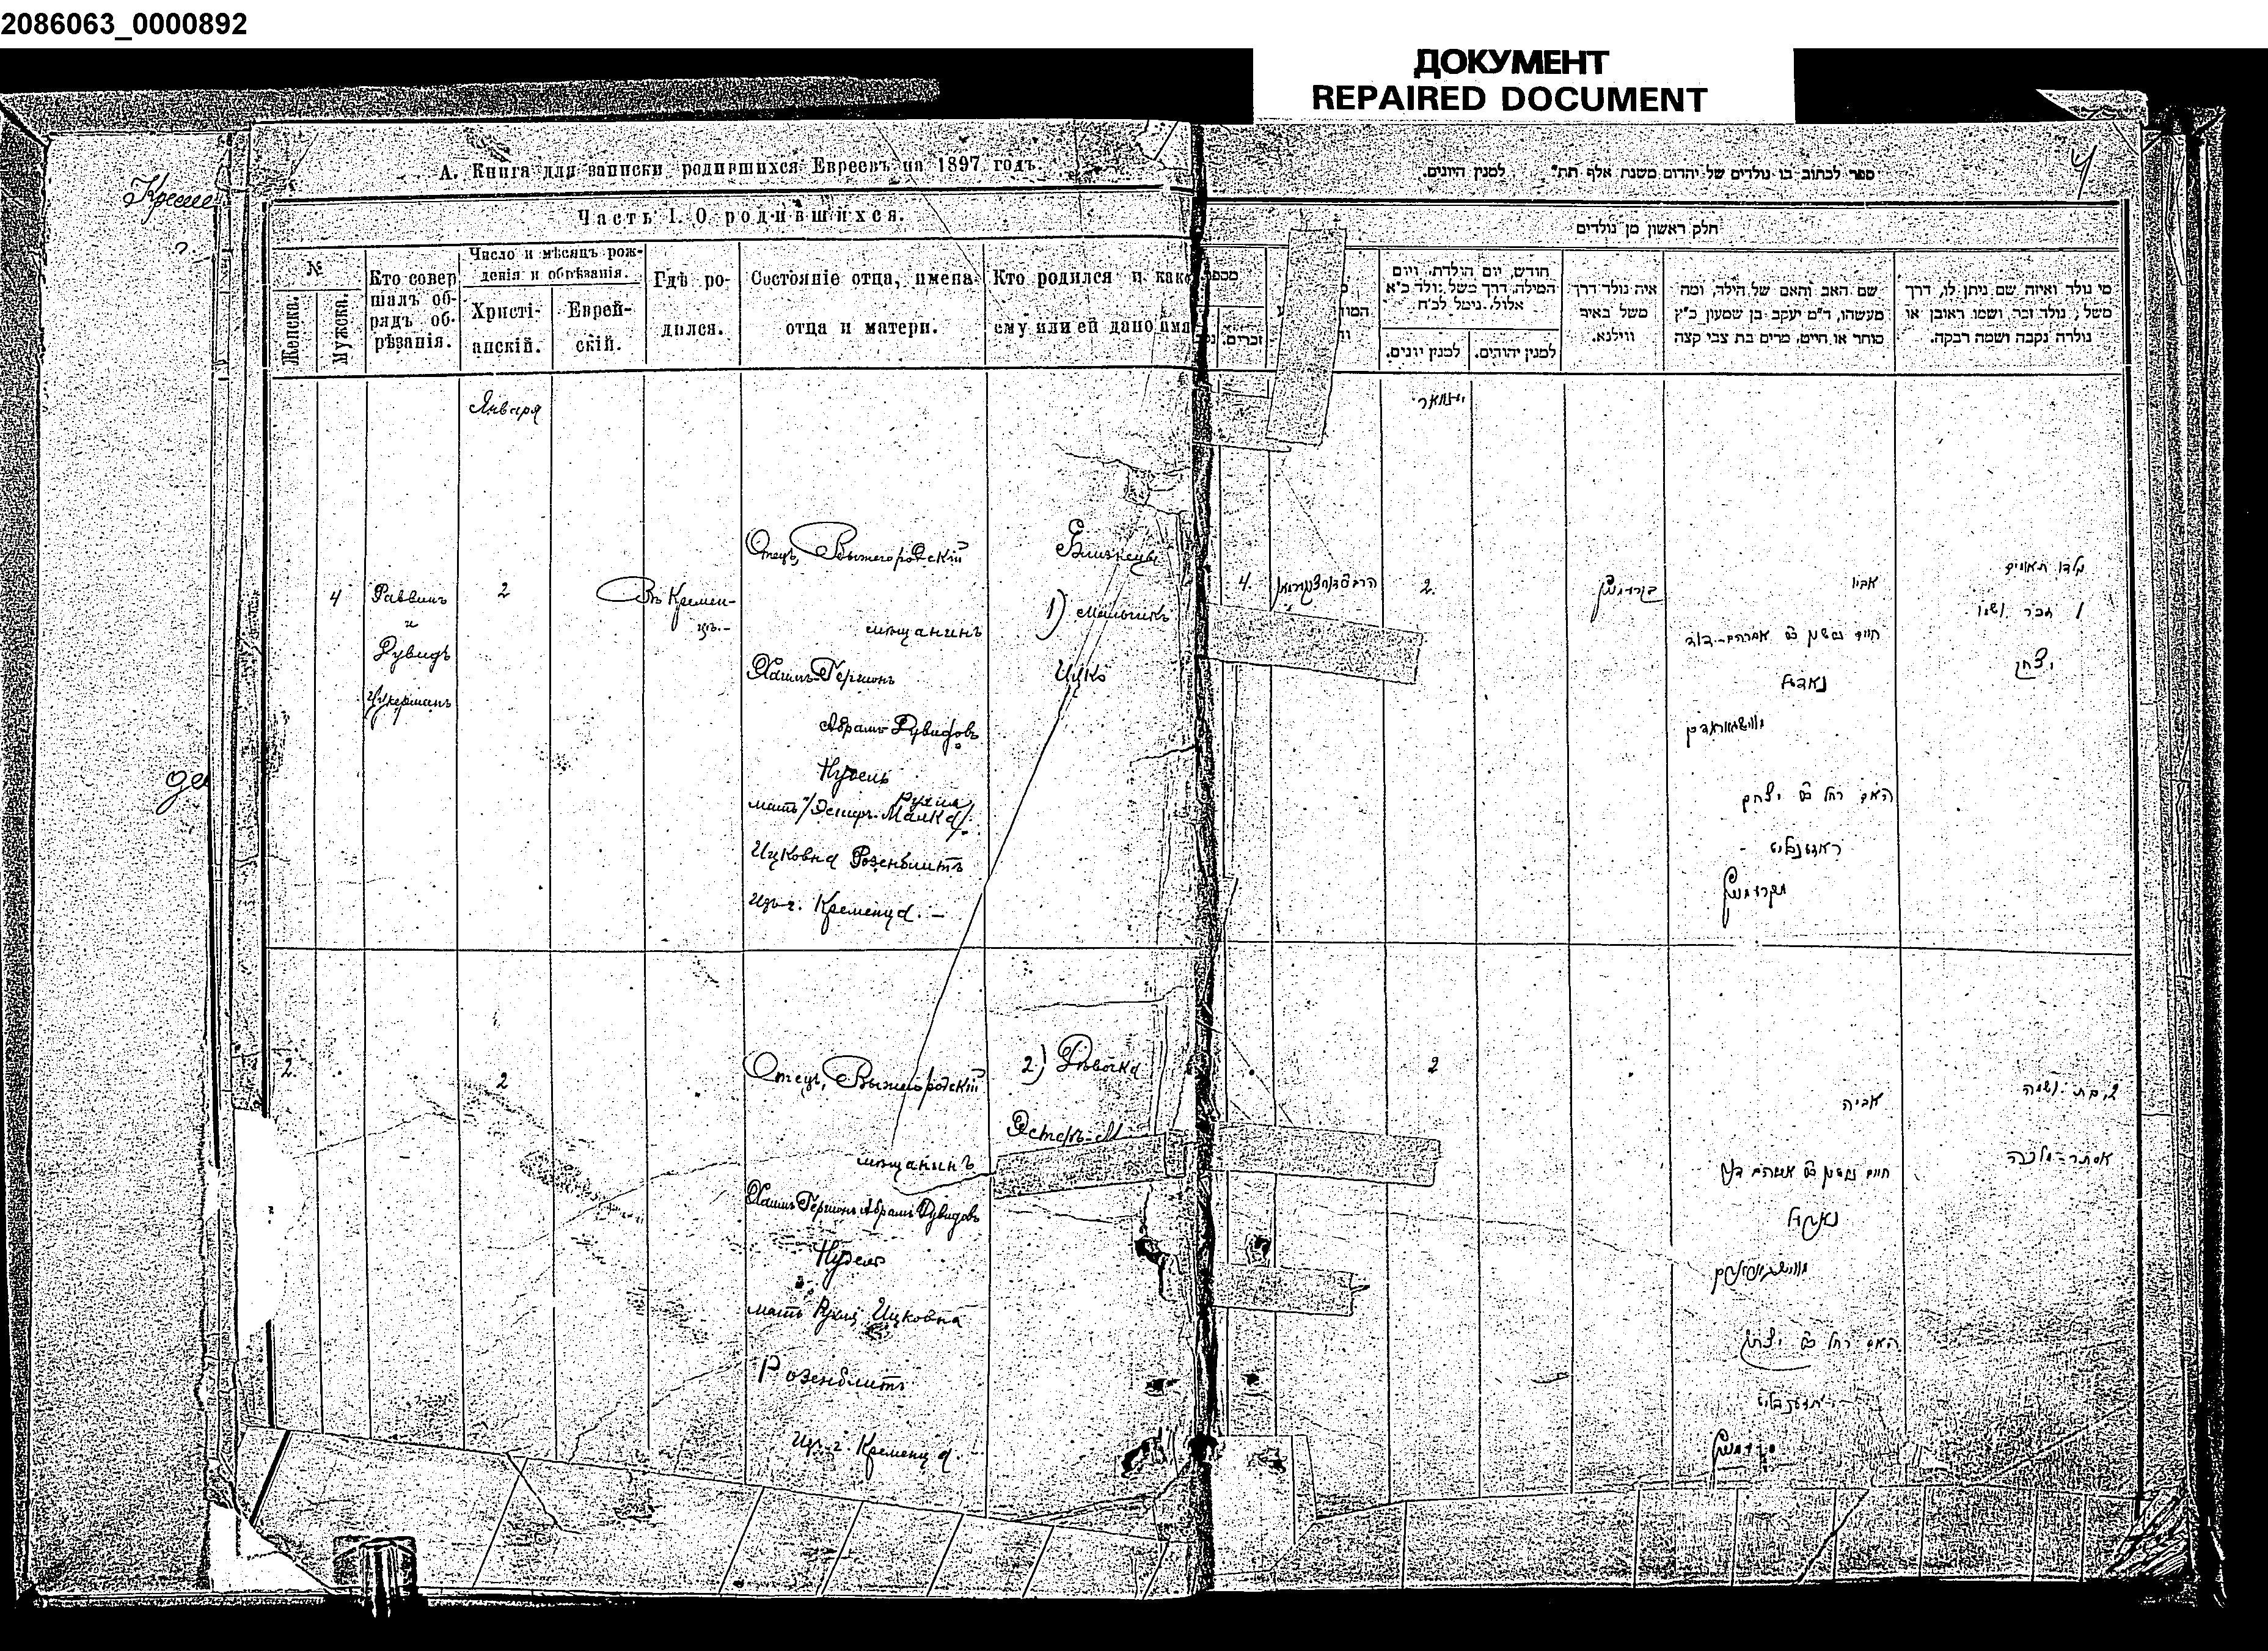 2086063_0000892
ДОКУМЕНТ
REPAIRED DOCUMENT
А. Книга для записки родившихся Евреевъ на 1897 годъ
Часть I. О родившихся.
№
Женска.
Мужска.
Кто совер
шалъ об-
рядъ об-
рѣзанія.
Число и мѣсяцъ рож-
денія и обрѣзанія.
Христі-
анскій.
Еврей-
скій.
Гдѣ ро-
дился.
Состояніе отца, имена
отца и матери.
Кто родился и како
ему или ей дано имя
Января
4
Раввинъ
и
Дувидъ
Цукерманъ
2
Въ Кремен-
цѣ.-
Отецъ, Вышегородскій
мѣщанинъ
Хаимъ-Гершонъ
Абрамъ-Дувидовъ
Нудель
мать /Эстеръ-Малка/ Рухля
Ицковна Розенблитъ
Изъ г. Кременца. —
Близнецы
1) мальчикъ
Ицко
2.
2
Отецъ, Вышегородскій
мѣщанинъ
Хаимъ Гершонъ Абрамъ Дувидовъ
Нудель
мать Рухля Ицковна
Розенблитъ
Изъ г. Кременца. —
2) Дѣвочка
Эстеръ-М
4
ספר לכתוב בו נולדים של יהדום משנת אלף תת" למנין היונים.
חלק ראשון מן נולדים
זכרים.
חודש, יום הולדת, ויום
המילה, דרך משל נולד כ"א
אלול, נימל לכ"ח
למנין יונים.
למנין יהודים.
איה נולד דרך
משל באיר
ווילנא.
שם האב והאם של הילד, ומה
מעשהו, ד"מ יעקב בן שמעון כ"ץ
סוחר או חייט, מרים בת צבי קצה
מי נולד ואיזה שם ניתן לו, דרך
משל, נולד זכר ושמו ראובן או
נולדה נקבה ושמה רבקה.
ינואר
4.
2.
אביו
חיים גרשון בן אברהם-דוד
נאדעל
האם רחל בת יצחק
ראזענבליט
נולדו תאומים
1 זכר ושמו
יצחק
2
אביה
חיים גרשון בן אברהם דוד
האם רחל בת יצחק
2, בת ושמה
אסתר-מלכה